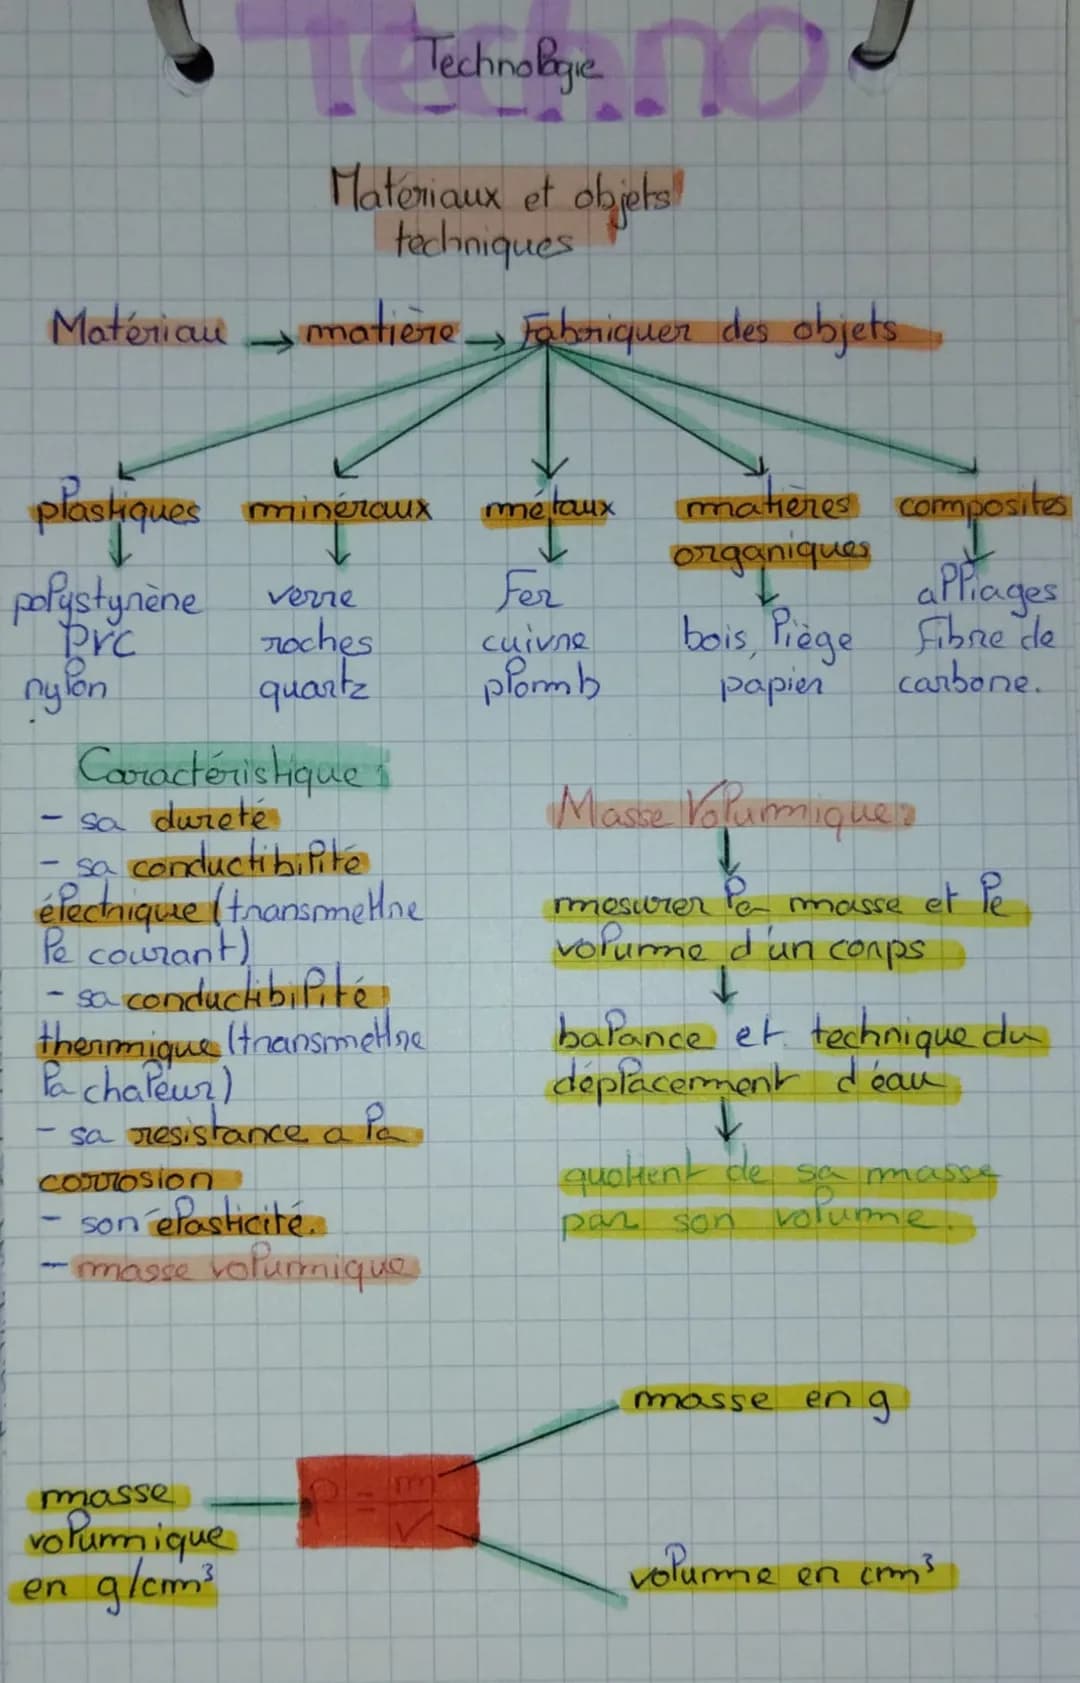 Techno
Technologie
Matériaux et objets
techniques
Matériau → matière → Fabriquer des objets
plastiques
polystyrène
PVC
nylon
minéraux
verre
roches
quartz
métaux
Fer
cuivre
plomb
matières
organiques
bois, liège
papier
composites
alliages
Fibre de
carbone.
Caractéristique :
- sa dureté
- sa conductibilité
électrique (transmettre
le courant)
- sa conductibilité
thermique (transmettre
la chaleur)
- sa resistance a la
corrosion
- son élasticité.
- masse volumique
Masse Volumique :
mesurer la masse et le
volume d'un corps
balance et technique du
déplacement d'éau
quotient de sa masse
par son volume.
masse en g
masse
volumique
en g/cm³
ρ = m/V
volume en cm³